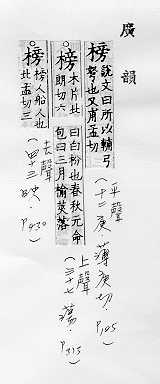 廣韻
榜
說文曰所以輔弓
弩也又甫孟切
平聲
(十二庚.薄庚切.P.185)
榜
木片北
朗切六
曰白枌也春秋元命
包曰三月榆莢落
上聲
(三十七蕩.P.315)
榜
榜人船人也
北孟切三
去聲
(四十三映.P430)